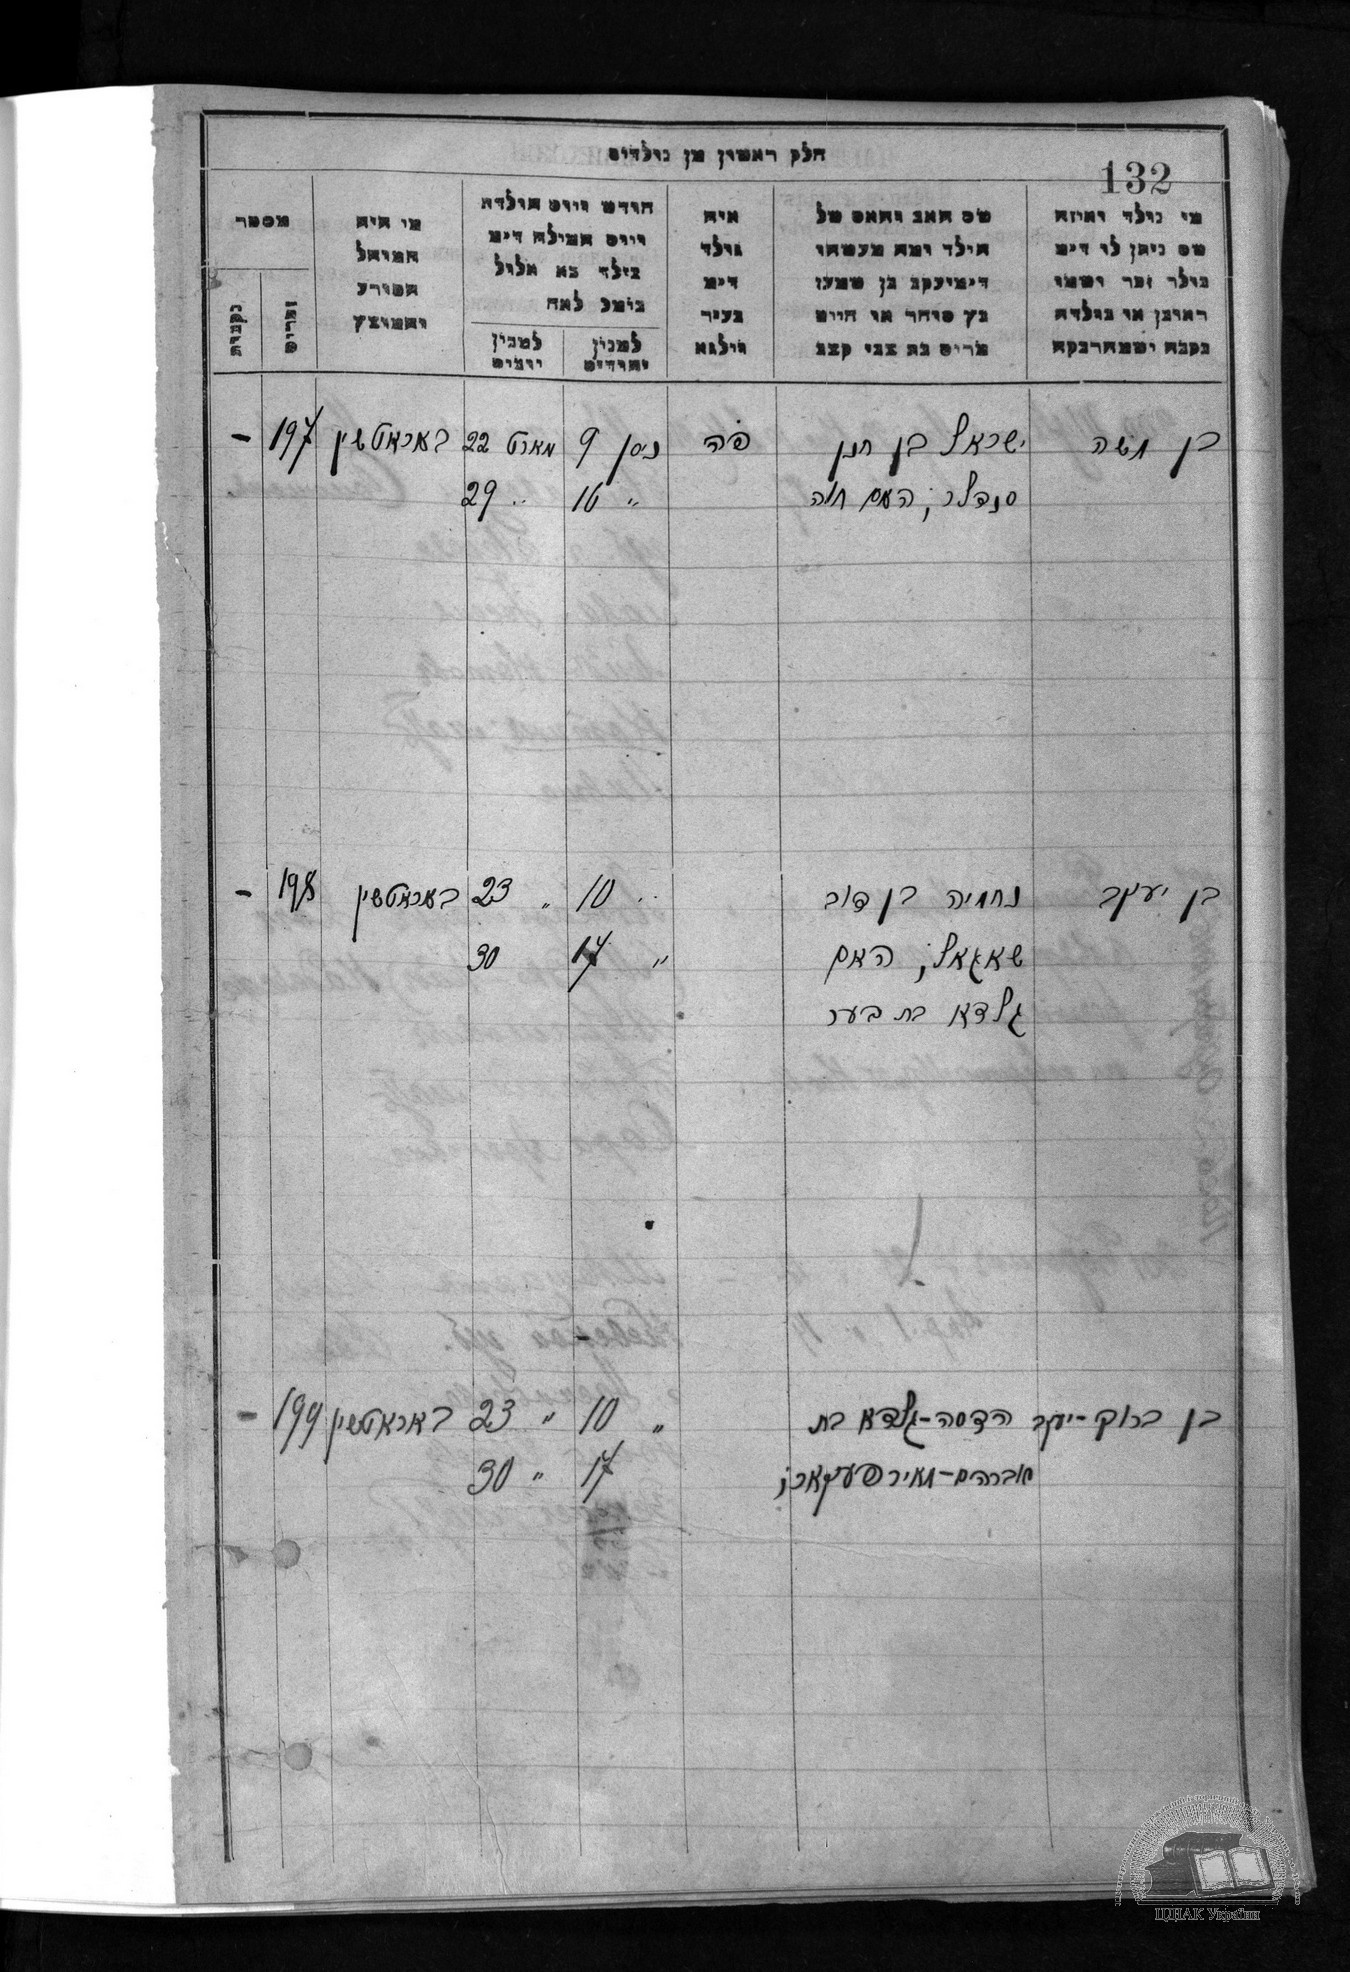 חלק ראשון מן נולדים
132
מי נולד ואיזה
שם ניתן לו דימ
נולד זכר ושמו
ראובן או נולדה
נקבה ושמה רבקה
שם האב והאם של
הילד ומה מעשהו
דימ יעקב בן שמעון
כץ סוחר או חיים
מריס בת צבי קצב
איה
נולד
דימ
בעיר
ווילנא
חודש ויום הולדה
ויום המילה דימ
בילד בא אלול
נומל לאח
למנין
יהודים
למנין
יומים
מי היה
המוהל
הפורע
והמוצץ
מספר
זכרים
נקבות
בן משה
ישראל בן חנן
פה
ניסן 9
מארט 22
באראטשין
197
–
סנדלר; האם חוה
" 16
" 29
בן יעקב
נחמיה בן דוב
" 10
" 23
באראטשין
198
–
שאגאל; האם
" 17
30
גלדא בת בער
בן ברוך-יעקב
הדסה-גלדא בת
" 10
" 23
באראטשין
199
–
אברהם-מאיר
17
" 30
ЦДІАК України